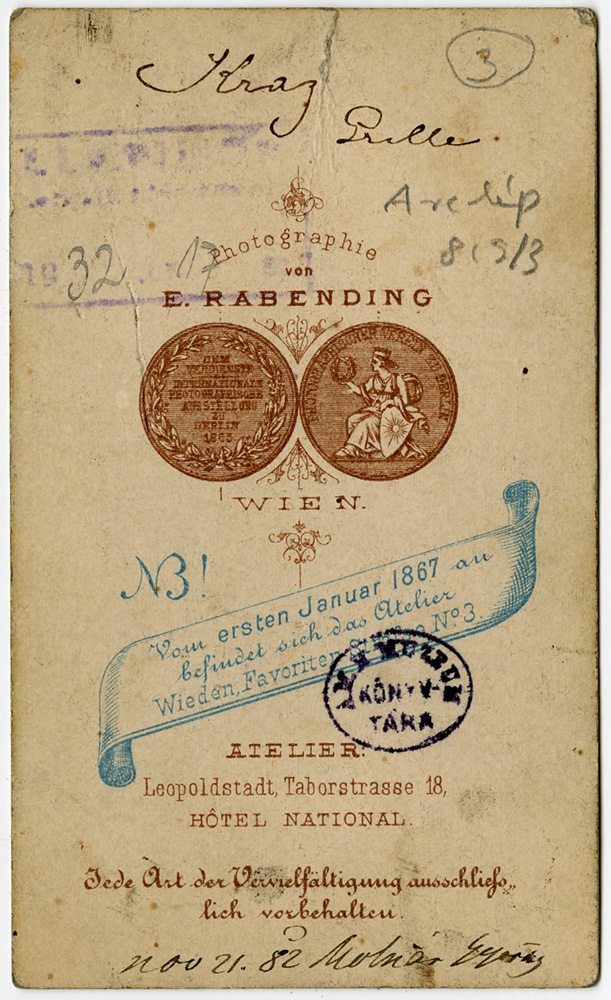 3
Kraz
Prille.
Arclép
819/3
32 17
Photographie
von
E. RABENDING
DEM
VERDIENSTE
INTERNATIONALE
PHOTOGRAPHISCHE
AUSSTELLUNG
ZU
BERLIN
1865
PHOTOGRAPHISCHER VEREIN ZU BERLIN
WIEN.
NB!
Vom ersten Januar 1867 an
befindet sich das Atelier
Wieden, Favoriten No 3.
KÖNYV-
TÁRA
ATELIER:
Leopoldstadt, Taborstrasse 18,
HÔTEL NATIONAL.
Jede Art der Vervielfältigung ausschliefs„
lich vorbehalten.
nov 21. 82 Molnár